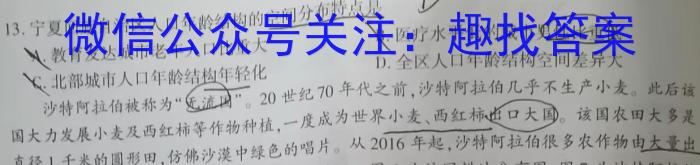 13. 宁夏人口年龄结构的空间分布特点是
微信公众号关注：趣找答案
A. 教育发达城市老年人口大
B. 医疗水
C. 北部城市人口年龄结构年轻化
D. 全区人口年龄结构空间差异大
沙特阿拉伯被称为“无流国”。20 世纪 70 年代之前，沙特阿拉伯几乎不生产小麦。此后该
国大力发展小麦及西红柿等作物种植，一度成为世界小麦、西红柿出口大国。该国农田大多是
直径 1 千米的圆形田，仿佛沙漠中绿色的唱片。从 2016 年起，沙特阿拉伯很多农作物由大量出